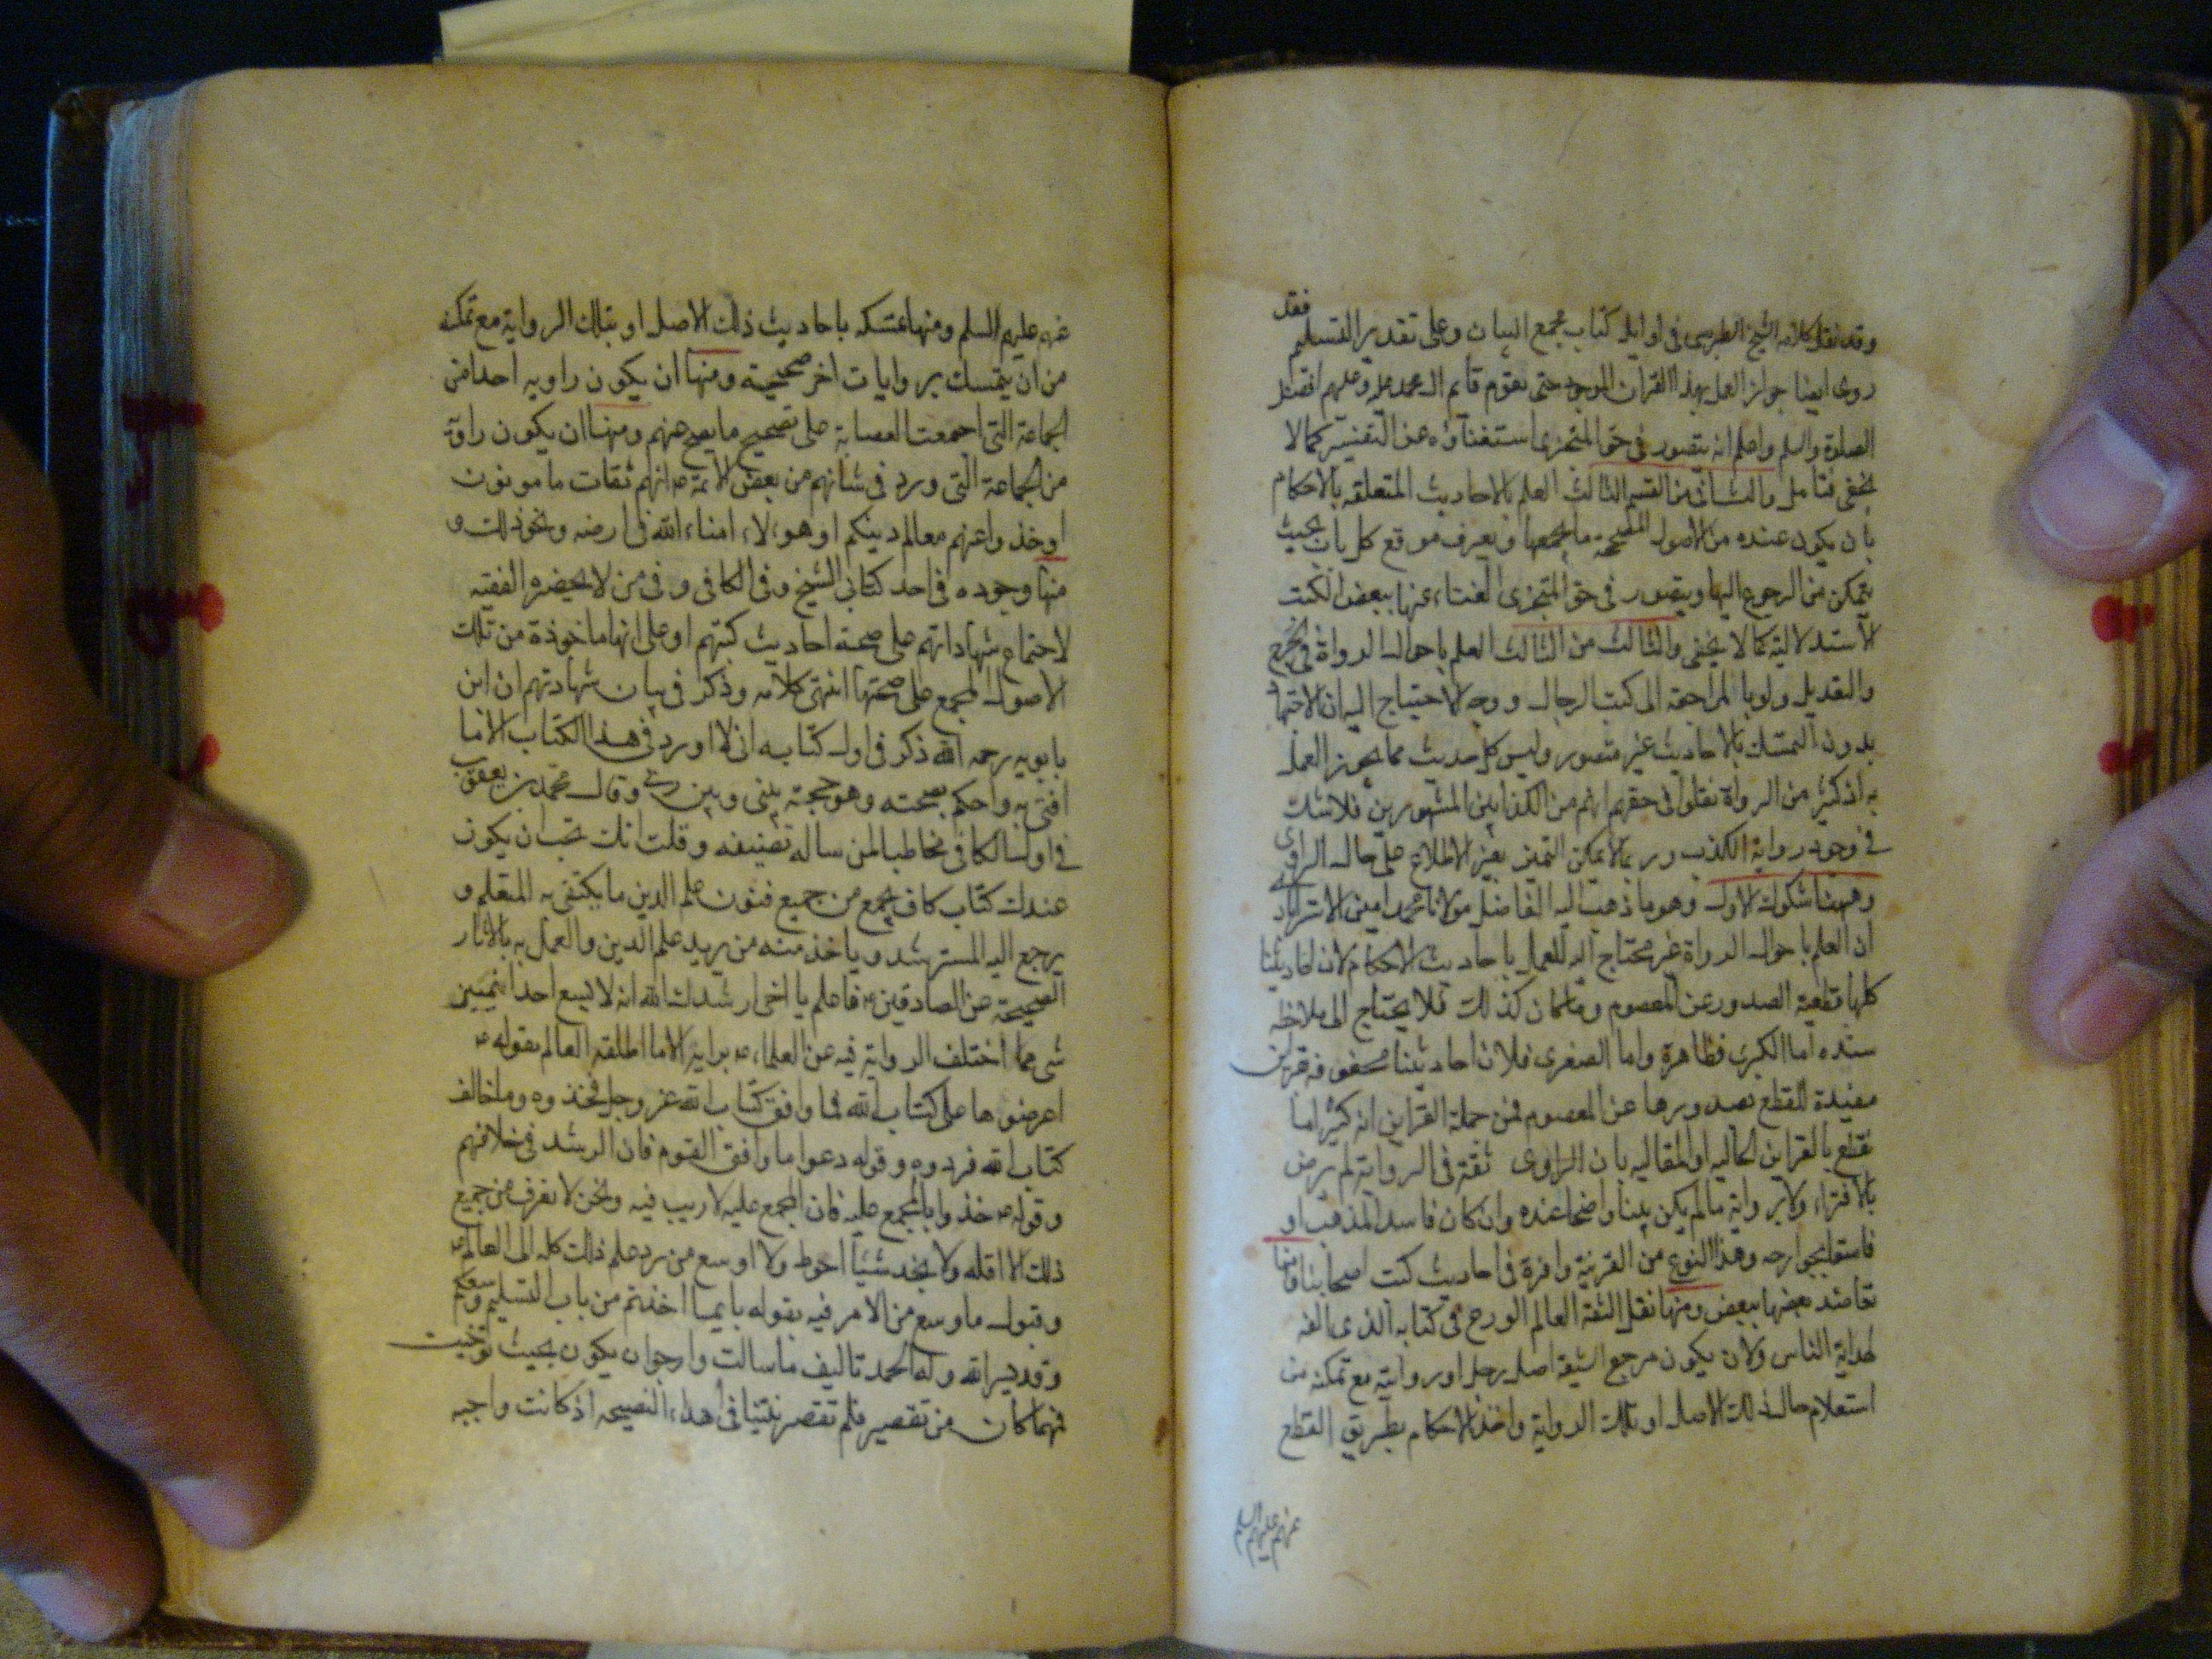 وقد نقل كلامه الشيخ الطبرسي في اوايل كتاب مجمع البيان وعلى تقدير التسليم فقد
روى ايضا جواز العمل بهذا القران الموجود حتى يقوم قايم ال محمد عليه وعليهم افضل
الصلوة والسلم واعلم انه يتصور في حق المتجزى استغناؤه عن التفسير كما لا
يخفى فتامل والثاني من القسم الثالث العلم بالاحاديث المتعلقه بالاحكام
بان يكون عنده من الاصول المصححة ما يجمعها ويعرف موقع كل باب بحيث
يتمكن من الرجوع اليها ويتصور في حق المتجزى الغناء عنها ببعض الكتب
الاستدلالية كما لا يخفى والثالث من الثالث العلم باحوال الرواة في الجرح
والتعديل ولو بالمراجعة الى كتب الرجال ووجه الاحتياج اليه ان الاجتها
بدون التمسك بالاحاديث غير متصور وليس كل حديث مما يجوز العمل
به اذ كثير من الرواة نقلوا في حقهم انهم من الكذابين المشهورين فلا شك
في وجود رواية الكذب وربما لا يمكن التميز بغير الاطلاع على حال الراوى
وههنا شكوك الاول وهو ما ذهب اليه الفاضل مولانا محمد امين الاسترابادي
ان العلم باحوال الرواة غير محتاج اليه للعمل باحاديث الاحكام لان احاديثنا
كلها قطعية الصدور عن المعصوم وما كان كذلك فلا يحتاج الى ملاحظه
سنده اما الكبرى فظاهرة واما الصغرى فلان احاديثنا محفوفه قرائن
مفيدة للقطع بصدورها عن المعصوم فمن جملة القراين انه كثيرا ما
نقطع بالقراين الحاليه او المقاليه بان الراوى ثقة في الرواية لم يرض
بالافتراء ولا برواية ما لم يكن بينا واضحا عنده وان كان فاسد المذهب او
فاسقا بجوارحه وهذا النوع من القرينة وافرة في احاديث كتب اصحابنا ومنها
تعاضد بعضها ببعض ومنها نقل الثقة العالم الورع في كتابه الذى الفه
لهداية الناس ولان يكون مرجع الشيعة اصل رجل او روايته مع تمكنه من
استعلام حال ذلك الاصل او تلك الرواية واخذ الاحكام بطريق القطع
عنهم عليهم السلم
عنهم عليهم السلم ومنها تمسكه باحاديث ذلك الاصل او بتلك الرواية مع تمكنه
من ان يتمسك بروايات اخر صحيحة ومنها ان يكون راويه احدا من
الجماعة التى اجمعت العصابة على تصحيح ما يصح عنهم ومنها ان يكون راويه
من الجماعة التى ورد في شانهم من بعض الائمة ع انهم ثقات مامونون
او خذوا عنهم معالم دينكم او هولاء امناء الله في ارضه ونحو ذلك و
منها وجوده في احد كتابي الشيخ وفي الكافي وفي من لا يحضره الفقيه
لاجتماع شهاداتهم على صحة احاديث كتبهم او على انها ماخوذة من تلك
الاصول المجمع على صحتها انتهى كلامه وذكر في بيان شهادتهم ان ابن
بابويه رحمه الله ذكر في اول كتابه انى لا اورد في هذا الكتاب الا ما
افتى به واحكم بصحته وهو حجة بيني وبين ربي وقال محمد بن يعقوب
في اول الكافي مخاطبا لمن ساله تصنيفه وقلت انك تحب ان يكون
عندك كتاب كاف يجمع من جميع فنون علم الدين ما يكتفى به المتعلم و
يرجع اليه المسترشد وياخذ منه من يريد علم الدين والعمل به بالاثار
الصحيحة عن الصادقين ع فاعلم يا اخى ارشدك الله انه لا يسع احدا تمييز
شى مما اختلف الرواية فيه عن العلماء ع برايه الا ما اطلقه العالم بقوله ع
اعرضوها على كتاب الله فما وافق كتاب الله عز وجل فخذوه وما خالف
كتاب الله فردوه وقوله دعوا ما وافق القوم فان الرشد في خلافهم
وقوله ع خذوا بالمجمع عليه فان المجمع عليه لا ريب فيه ونحن لا نعرف من جميع
ذلك الا اقله ولا نجد شيئا احوط ولا اوسع من رد علم ذلك كله الى العالم ع
وقبول ما وسع من الامر فيه بقوله بايما اخذتم من باب التسليم وسعكم
وقد يسر الله وله الحمد تاليف ما سالت وارجو ان يكون بحيث توخيت
فمهما كان من تقصير فلم تقصر نيتنا في اهداء النصيحه اذ كانت واجبه